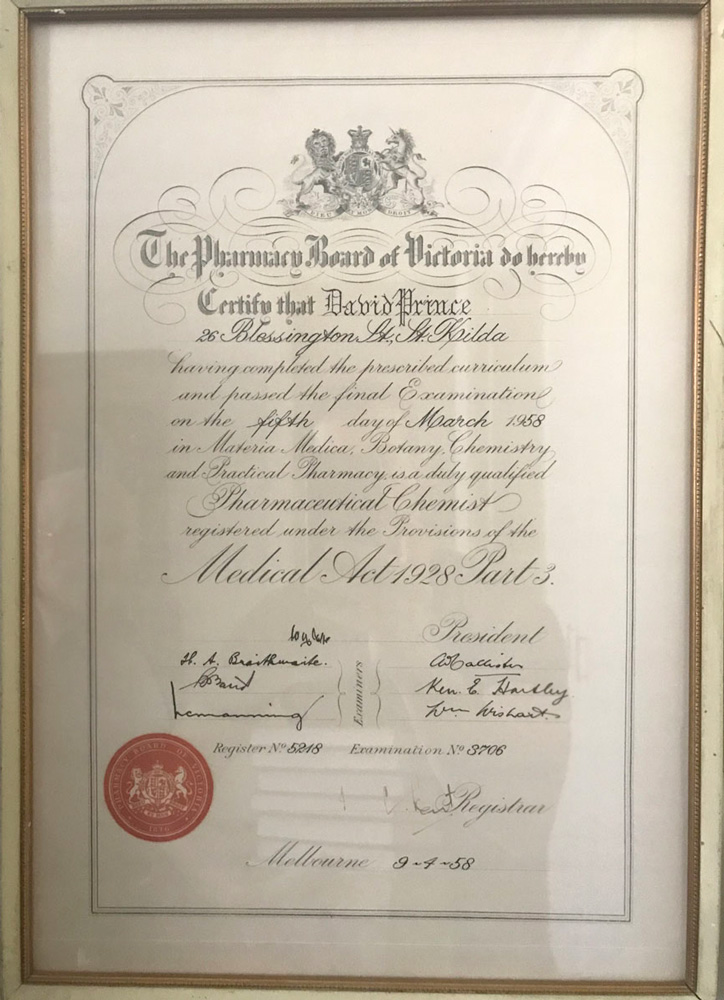 The Pharmacy Board of Victoria do hereby
Certify that David Prince
26 Blessington St, St. Kilda
having completed the prescribed curriculum
and passed the final Examination
on the fifth day of March 1958
in Materia Medica, Botany, Chemistry
and Practical Pharmacy, is a duly qualified
Pharmaceutical Chemist
registered under the Provisions of the
Medical Act 1928 Part 3.
President
H. A. Braithwaite.
Ken. E. Hartley
Wm Wishart
Examiners
Register No 5218 Examination No 3706
PHARMACY BOARD OF VICTORIA
1876
Registrar
Melbourne 9-4-58